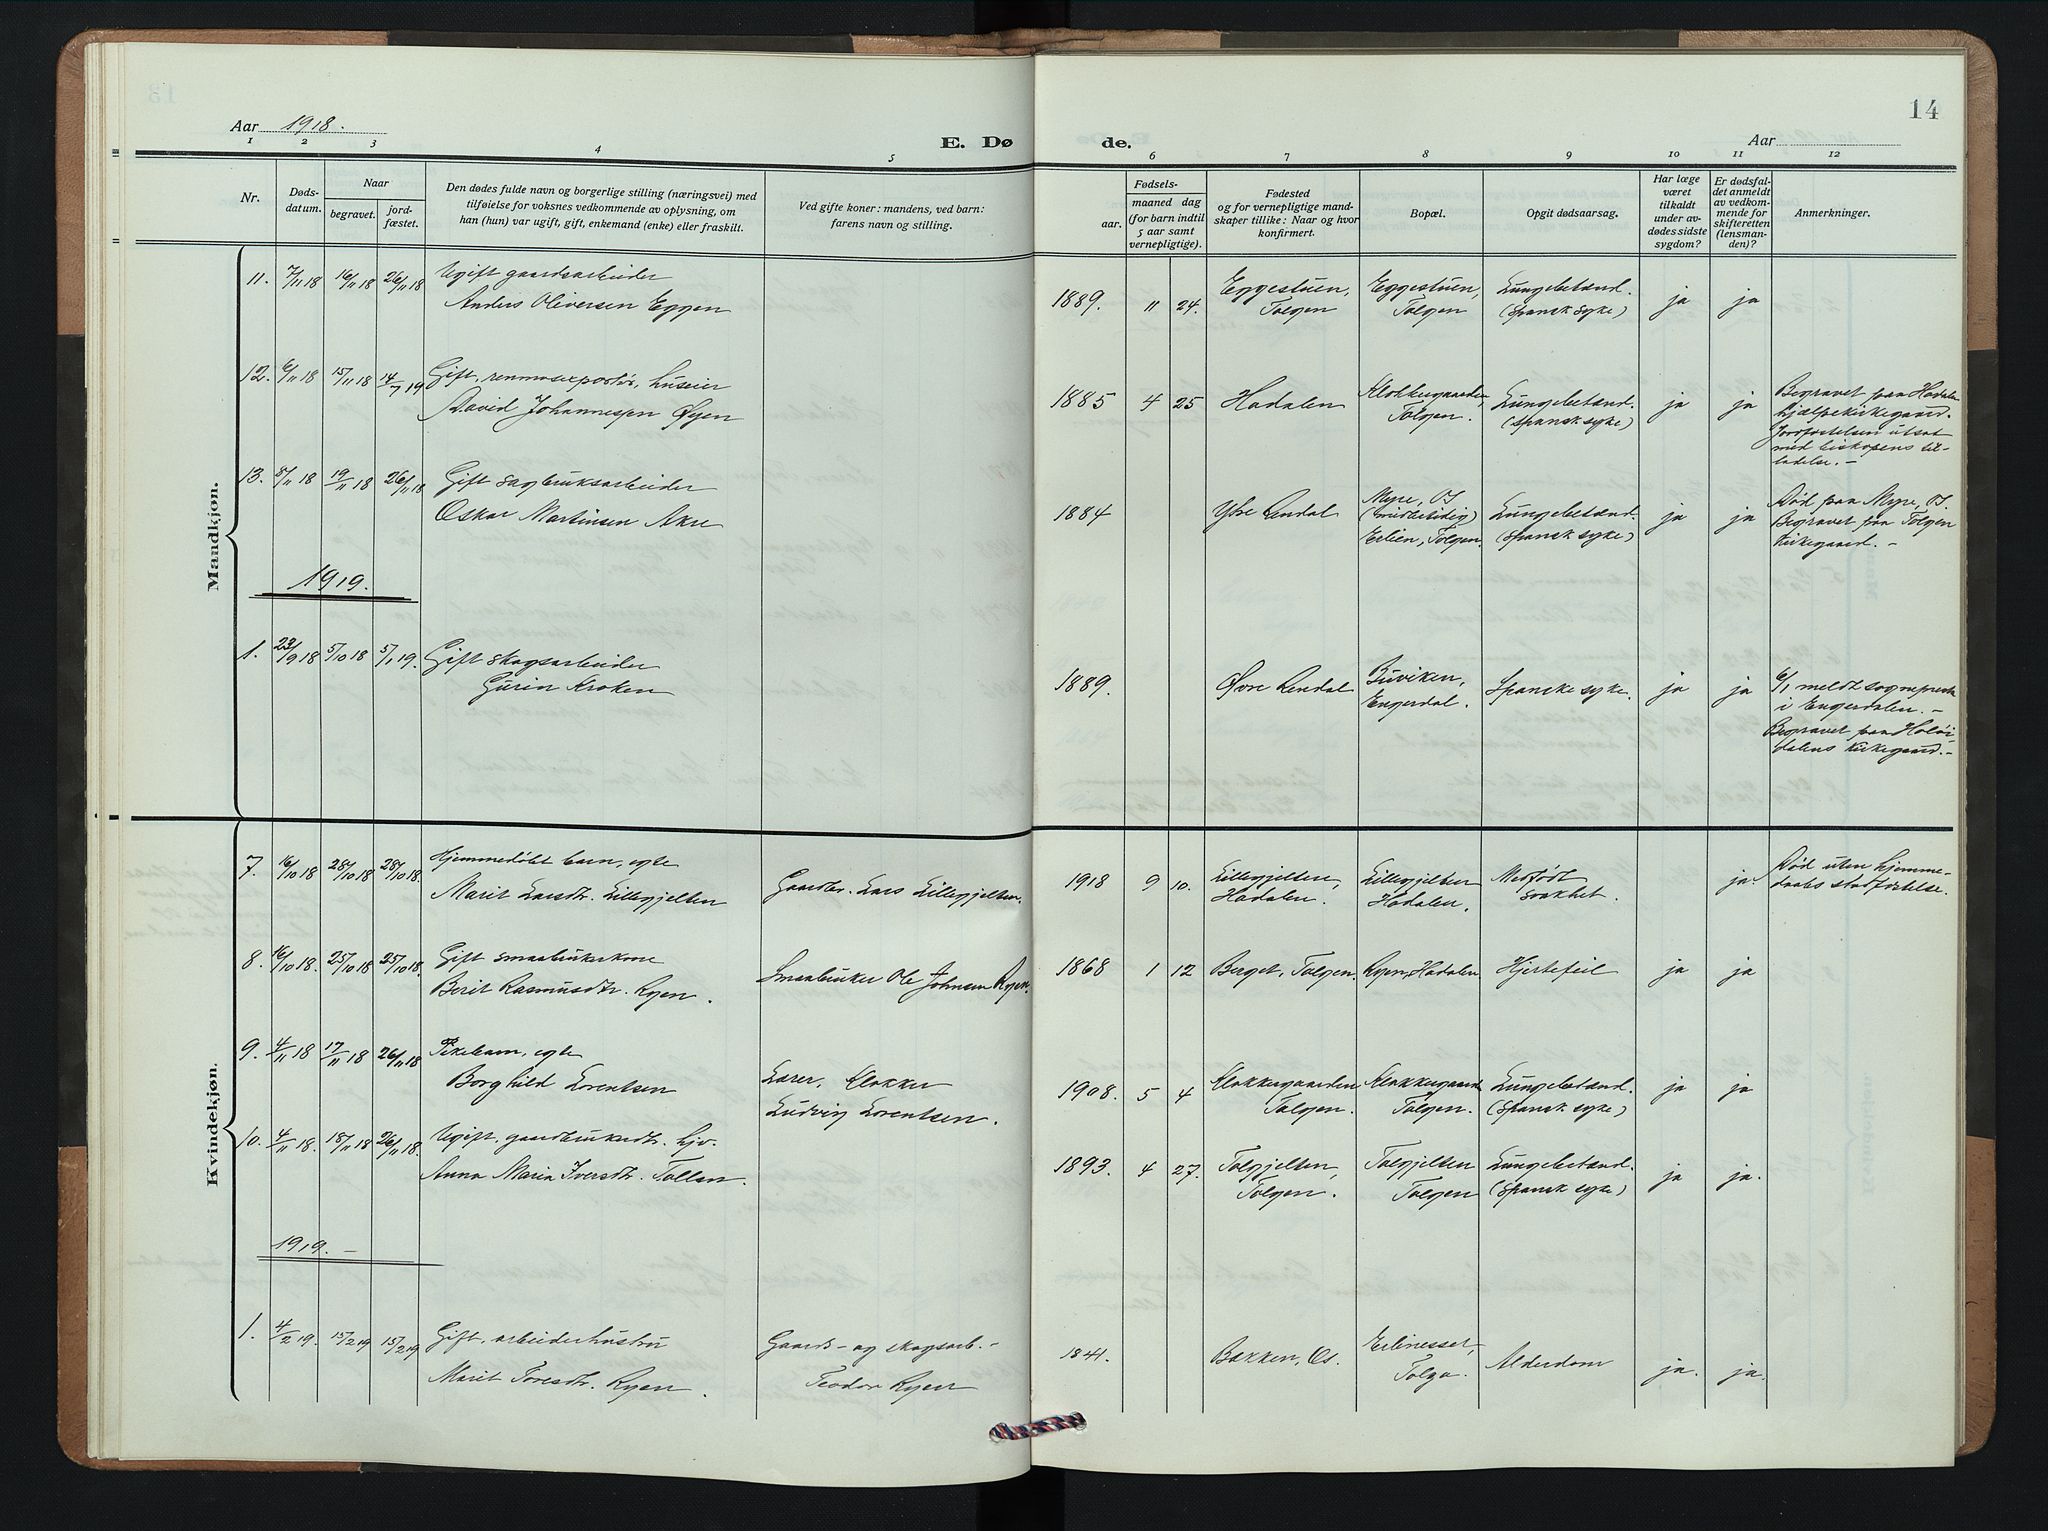 14
Aar 1918.
E. Dø
de.
Aar
1 2 3 4 5
6 7 8 9 10 11 12
Nr.
Døds-
datum.
Naar
begravet.
jord-
fæstet.
Den dødes fulde navn og borgerlige stilling (næringsvei) med
tilføielse for voksnes vedkommende av oplysning, om
han (hun) var ugift, gift, enkemand (enke) eller fraskilt.
Ved gifte koner: mandens, ved barn:
farens navn og stilling.
Fødsels-
aar.
maaned dag
(for barn indtil
5 aar samt
vernepligtige).
Fødested
og for vernepligtige mand-
skaper tillike: Naar og hvor
konfirmert.
Bopæl.
Opgit dødsaarsag.
Har læge
været
tilkaldt
under av-
dødes sidste
sygdom?
Er dødsfal-
det anmeldt
av vedkom-
mende for
skifteretten
(lensman-
den)?
Anmerkninger.
Mandkjøn.
11. 7/11 18 16/11 18 26/11 18 Ugift gaardsarbeider
Anders Oliversen Eggen
1889. 11 24. Eggestuen, Tolgen Eggestuen, Tolgen Lungebetænd. (Spansk syke) ja ja
12. 6/11 18 15/11 18 14/7 19 Gift, renmoseexportør, huseier
David Johannessen Øyen
1885 4 25 Hodalen Klokkergaarden, Tolgen. Lungebetænd. (Spansk syke) ja ja
Begravet paa Hodalen
hjælpekirkegaard.
Jordfæstelsen utsat
med biskopens til-
ladelse. -
13. 8/11 18 19/11 18 26/11 18 Gift sagbruksarbeider
Oskar Martinsen Akre
1884 Ytre Rendal Myre, Os (midlertidig) Erlien, Tolgen. Lungebetænd. (Spansk syke) ja ja
Død paa Myre, Os.
Begravet paa Tolgen
kirkegaard. -
1919.
1. 23/9 18 5/10 18 5/1 19. Gift skogsarbeider
Gurin Kroken
1889. Øvre Rendal Buviken, Engerdal. Spanske syke. ja ja
6/1 meldt sogneprest
i Engerdalen. -
Begravet paa Holøi-
dalens kirkegaard. -
Kvindekjøn.
7. 16/10 18 28/10 18 28/10 18 Hjemmedøbt barn, egte
Marit Larsdtr. Lillegjelten
Gaardbr. Lars Lillegjelten.
1918 9 10. Lillegjelten, Hodalen. Lillegjelten Hodalen. Medfødt svakhet. ja.
Død uten hjemme-
daabs stadfæstelse.
8. 16/10 18. 25/10 18 25/10 18. Gift smaabrukerkone
Berit Rasmusdtr. Ryen.
Smaabruker Ole Johnsen Ryen.
1868 1 12 Berget, Tolgen. Ryen, Hodalen Hjertefeil ja ja
9. 4/11 18 17/11 18 26/11 18 Pikebarn, egte
Borghild Lorentsen
Lærer, Klokker
Ludvig Lorentsen.
1908. 5 4 Klokkergaarden Tolgen. Klokkergaard Tolgen. Lungebetænd. (Spansk syke) ja ja
10. 4/11 18. 18/11 18 26/11 18. Ugift, gaardbrukerdtr. hjv.
Anna Maria Iversdtr. Tollan.
1893. 4 27. Tolgjelten, Tolgen. Tolgjelten Tolgen Lungebetænd. (Spansk syke) ja ja.
1919. -
1. 4/2 19. 15/2 19 15/2 19 Gift, arbeiderhustru
Marit Toresdtr. Ryen.
Gaards- og skogsarb. -
Teodor Ryen
1841. Bakken, Os. Erlinesset, Tolga. Alderdom ja. ja.